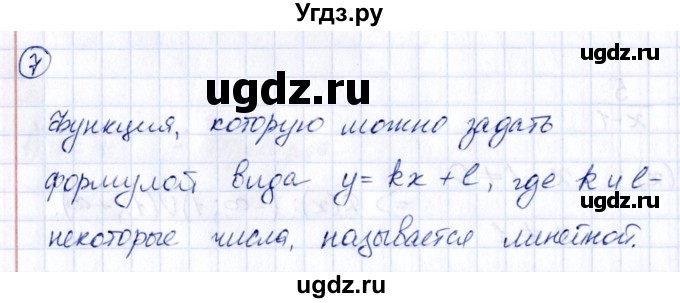 Угдз.ру
ugdz.ru
7
ugdz.ru
Функция, которую можно задать
ugdz.ru
формулой вида y = kx + l, где k и l –
некоторые числа, называется линейной.
ugdz.ru
ugdz.ru